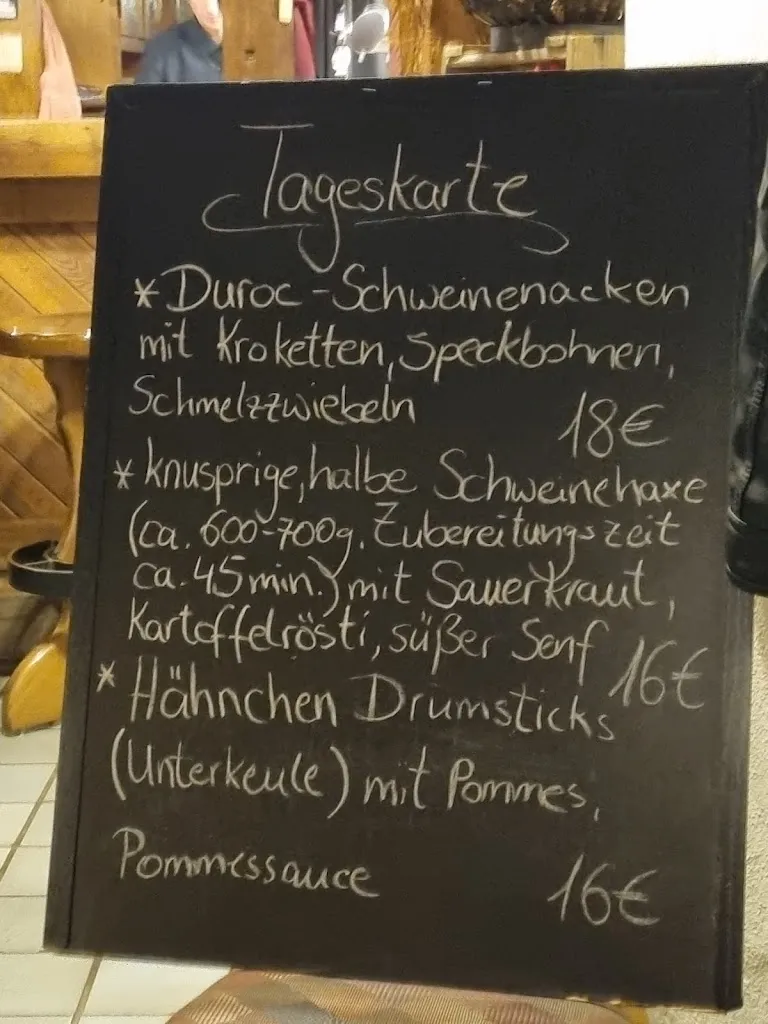 Tageskarte
* Duroc - Schweinenacken
mit Kroketten, Speckbohnen,
Schmelzzwiebeln 18€
* knusprige, halbe Schweinehaxe
(ca. 600-700g. Zubereitungszeit
ca. 45min.) mit Sauerkraut,
Kartoffelrösti, süßer Senf 16€
* Hähnchen Drumsticks
(Unterkeule) mit Pommes,
Pommessauce 16€